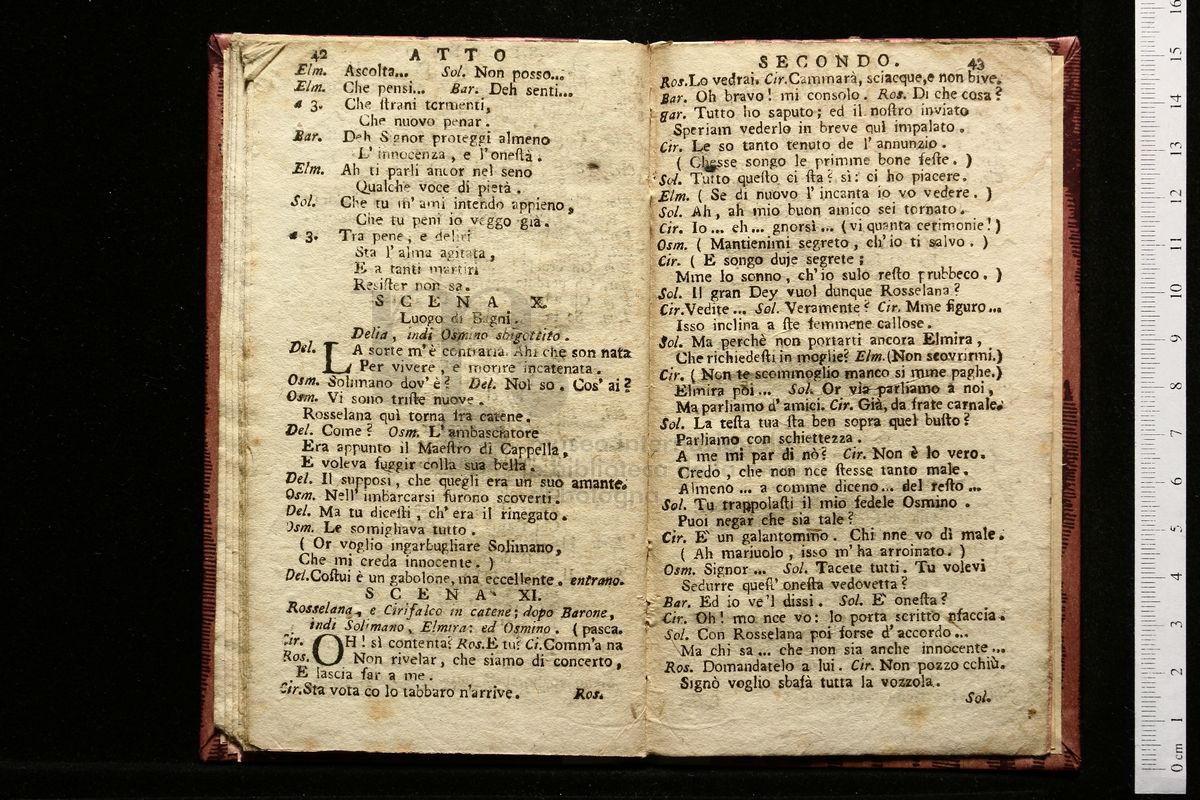 42 ATTO
Elm. Ascolta... Sol. Non posso...
Elm. Che pensi... Bar. Deh senti...
a 3. Che ſtrani tormenti,
Che nuovo penar.
Bar. Deh Signor proteggi almeno
L' innocenza, e l'oneſtà.
Elm. Ah ti parli ancor nel seno
Qualche voce di pietà.
Sol. Che tu m' ami intendo appieno,
Che tu peni io veggo già.
a 3. Tra pene, e deliri
Sta l'alma agitata,
E a tanti martiri
Reſiſter non sa.
SCENA X.
Luogo di Bagni.
Delia, indi Osmino sbigottito.
Del. LA sorte m'è contraria. Ahi che son nata
Per vivere, e morire incatenata.
Osm. Solimano dov'è? Del. Nol so. Cos' ai?
Osm. Vi sono triſte nuove.
Rosselana quì torna fra catene.
Del. Come? Osm. L'ambasciatore
Era appunto il Maeſtro di Cappella,
E voleva fuggir colla sua bella.
Del. Il supposi, che quegli era un suo amante.
Osm. Nell' imbarcarsi furono scoverti.
Del. Ma tu diceſti, ch'era il rinegato.
Osm. Le somigliava tutto.
( Or voglio ingarbugliare Solimano,
Che mi creda innocente. )
Del. Coſtui è un gabolone, ma eccellente. entrano.
SCENA XI.
Rosselana, e Cirifalco in catene; dopo Barone,
indi Solimano, Elmira; ed Osmino. (pasca.
Cir. OH! sì contenta? Ros. E tu? Ci. Comm'a na
Ros. Non rivelar, che siamo di concerto,
E lascia far a me.
Cir. Sta vota co lo tabbaro n'arrive. Ros.
SECONDO. 43
Ros. Lo vedrai. Cir. Cammarà, sciacque, e non bive.
Bar. Oh bravo! mi consolo. Ros. Di che cosa?
Bar. Tutto ho saputo; ed il noſtro inviato
Speriam vederlo in breve quì impalato.
Cir. Le so tanto tenuto de l'annunzio.
( Chesse songo le primme bone feſte. )
Sol. Tutto queſto ci ſta? sì: ci ho piacere.
Elm. ( Se di nuovo l'incanta io vo vedere. )
Sol. Ah, ah mio buon amico sei tornato.
Cir. Io... eh... gnorsì... (vi quanta cerimonie!)
Osm. ( Mantienimi segreto, ch'io ti salvo. )
Cir. ( E songo duje segrete;
Mme lo sonno, ch'io sulo reſto prubbeco. )
Sol. Il gran Dey vuol dunque Rosselana?
Cir. Vedite... Sol. Veramente? Cir. Mme figuro...
Isso inclina a ſte femmene callose.
Sol. Ma perchè non portarti ancora Elmira,
Che richiedeſti in moglie? Elm. (Non scovrirmi.)
Cir. ( Non te scommoglio manco si mme paghe.)
Elmira poi... Sol. Or via parliamo a noi,
Ma parliamo d'amici. Cir. Già, da frate carnale.
Sol. La teſta tua ſta ben sopra quel buſto?
Parliamo con schiettezza.
A me mi par di nò? Cir. Non è lo vero.
Credo, che non nce ſtesse tanto male.
Almeno... a comme diceno... del reſto...
Sol. Tu trappolaſti il mio fedele Osmino.
Puoi negar che sia tale?
Cir. E' un galantommo. Chi nne vo dì male.
( Ah mariuolo, isso m'ha arroinato. )
Osm. Signor... Sol. Tacete tutti. Tu volevi
Sedurre queſt' oneſta vedovetta?
Bar. Ed io ve'l dissi. Sol. E' oneſta?
Cir. Oh! mo nce vo: lo porta scritto nfaccia.
Sol. Con Rosselana poi forse d'accordo...
Ma chi sa... che non sia anche innocente...
Ros. Domandatelo a lui. Cir. Non pozzo cchiù.
Signò voglio sbafà tutta la vozzola.
Sol.